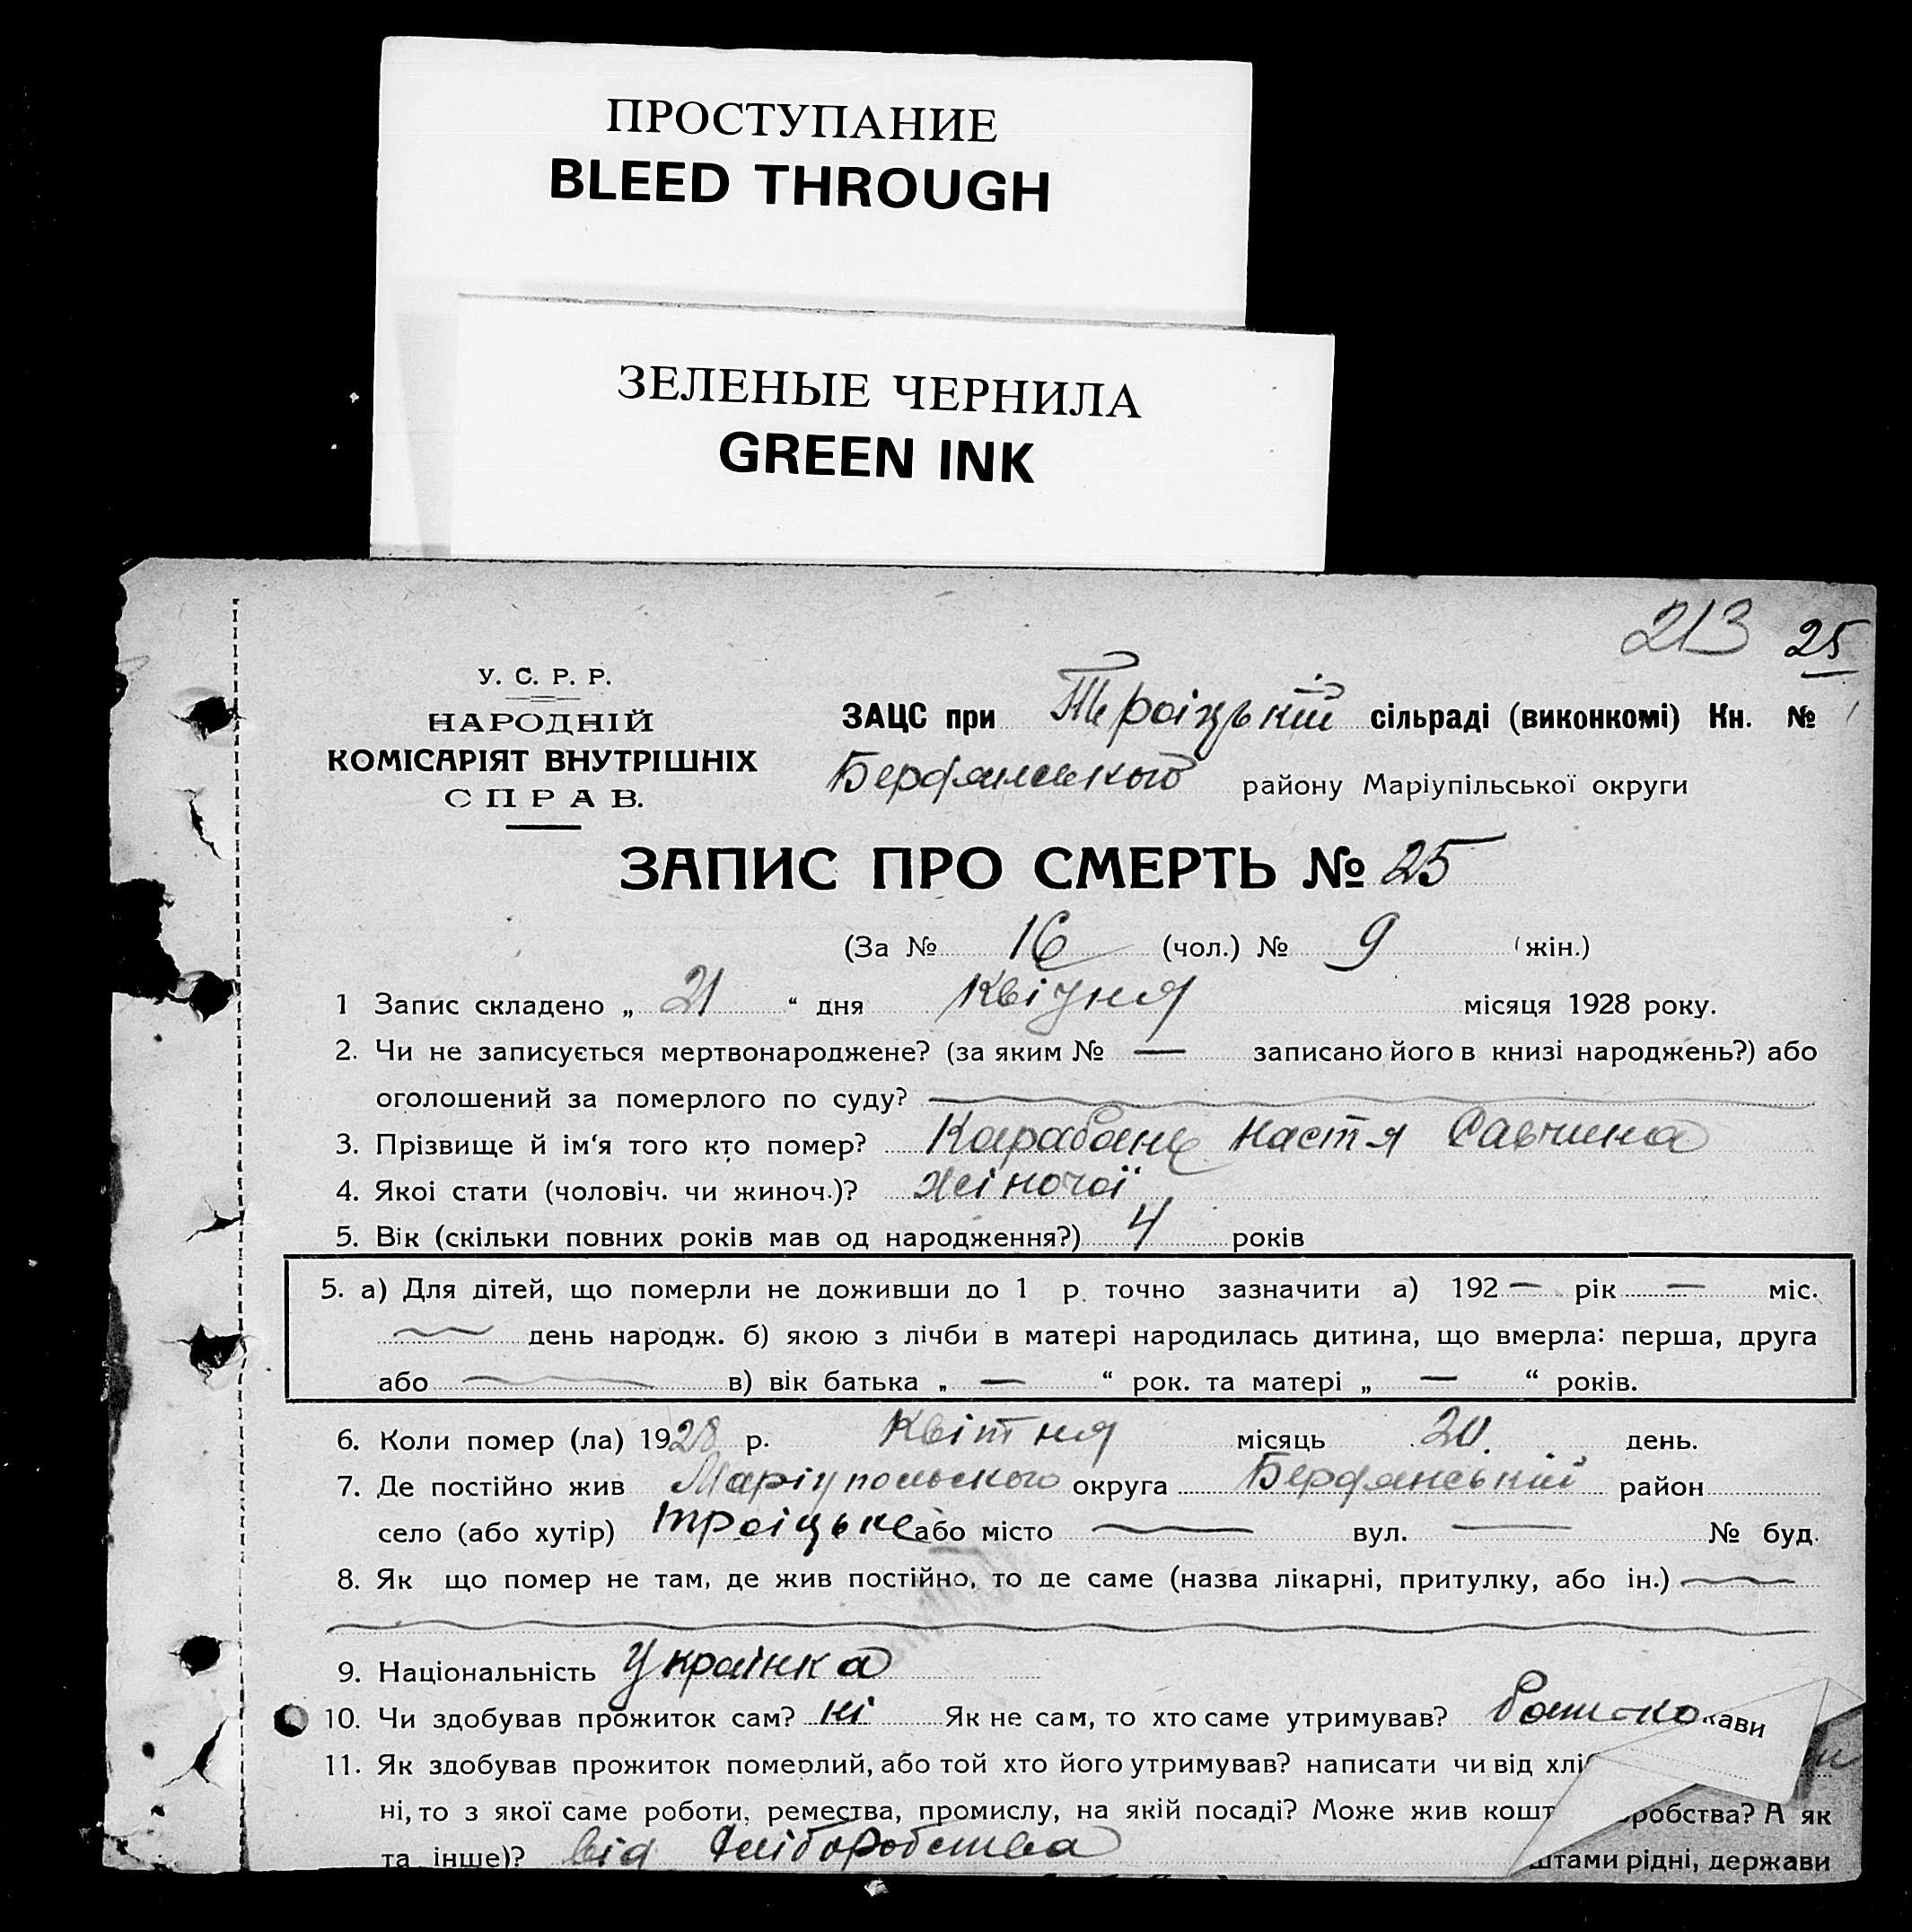 ПРОСТУПАНИЕ
BLEED THROUGH
ЗЕЛЕНЫЕ ЧЕРНИЛА
GREEN INK
213 25
У. С. Р. Р.
НАРОДНІЙ
КОМІСАРІЯТ ВНУТРІШНІХ
СПРАВ.
ЗАЦС при Троіцькій сільраді (виконкомі) Кн. №
Бердянського району Маріупільської округи
ЗАПИС ПРО СМЕРТЬ № 25
(За № 16 (чол.) № 9 (жін.)
1 Запис складено „ 21 “ дня Квітня місяця 1928 року.
2. Чи не записується мертвонароджене? (за яким № — записано його в книзі народжень?) або
оголошений за померлого по суду?
3. Прізвище й ім‘я того кто помер? Карабань Настя Савчина
4. Якоі стати (чоловіч. чи жиноч.)? жіночої
5. Вік (скільки повних років мав од народження?) 4 років
5. а) Для дітей, що померли не доживши до 1 р. точно зазначити а) 192 — рік — міс.
день народж. б) якою з лічби в матері народилась дитина, що вмерла: перша, друга
або в) вік батька „ — “ рок. та матері „ — “ років.
6. Коли помер (ла) 1928 р. Квітня місяць 20. день.
7. Де постійно жив Маріупольського округа Бердянській район
село (або хутір) Троіцьке або місто — вул. — № буд.
8. Як що помер не там, де жив постійно, то де саме (назва лікарні, притулку, або ін.) —
9. Національність Українка
10. Чи здобував прожиток сам? ні Як не сам, то хто саме утримував? кави
11. Як здобував прожиток померлий, або той хто його утримував? написати чи від хлі
ні, то з якої саме роботи, ремества, промислу, на якій посаді? Може жив кошт робства? А як
та інше)? від хліборобства штами рідні, держави